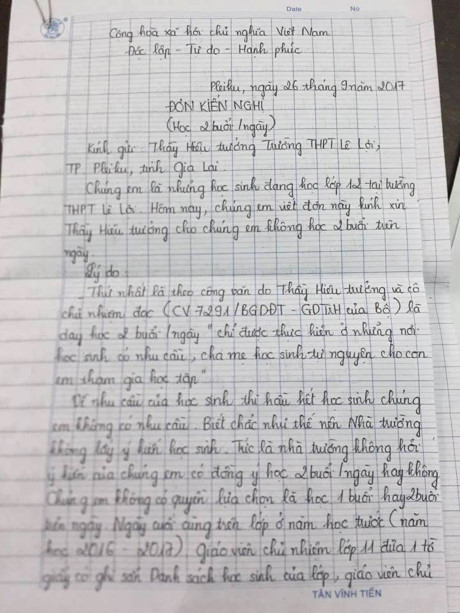 Date No
Cộng hoà xã hội chủ nghĩa Việt Nam
Độc lập - Tự do - Hạnh phúc
Pleiku, ngày 26 tháng 9 năm 2017
ĐƠN KIẾN NGHỊ
(Học 2 buổi/ngày)
Kính gửi Thầy Hiệu trưởng Trường THPT Lê Lợi,
TP. Pleiku, tỉnh Gia Lai
Chúng em là những học sinh đang học lớp 12 tại trường
THPT Lê Lợi. Hôm nay, chúng em viết đơn này kính xin
Thầy Hiệu trưởng cho chúng em không học 2 buổi trên
ngày.
Lý do:
Thứ nhất là theo công văn do Thầy Hiệu trưởng và cô
chủ nhiệm đọc (CV 7291/BGDĐT - GDTrH của Bộ) là
dạy học 2 buổi/ngày "chỉ được thực hiện ở những nơi
học sinh có nhu cầu, cha mẹ học sinh tự nguyện cho con
em tham gia học tập"
Về nhu cầu của học sinh thì hầu hết học sinh chúng
em không có nhu cầu. Biết chắc như thế nên Nhà trường
không lấy ý kiến học sinh. Tức là nhà trường không hỏi
ý kiến của chúng em có đồng ý học 2 buổi/ngày hay không
Chúng em không có quyền lựa chọn là học 1 buổi hay 2 buổi
trên ngày. Ngày cuối cùng trên lớp ở năm học trước (năm
học 2016 - 2017) giáo viên chủ nhiệm lớp 11 đưa 1 tờ
giấy có ghi sẵn Danh sách học sinh của lớp, giáo viên chủ
TÂN VĨNH TIẾN